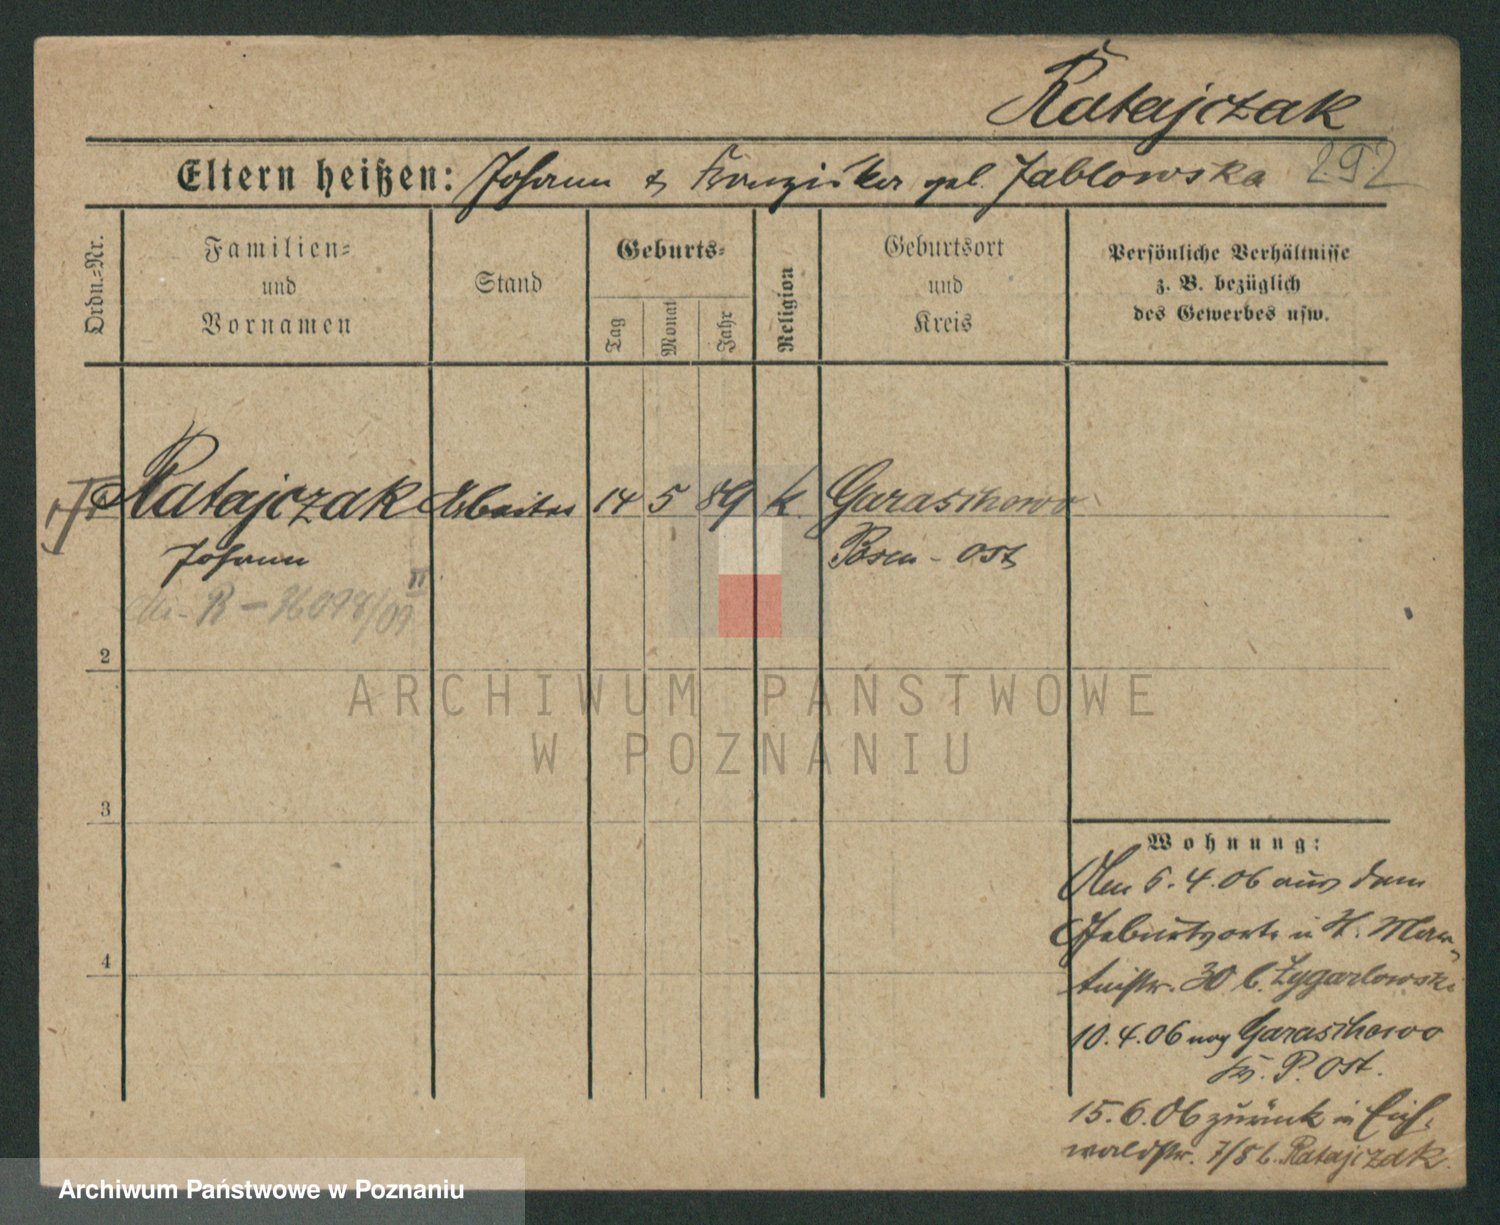 Ratajczak
Eltern heißen: Johann & Franziska geb. Jablowska 292
Ordn.-Nr.
Familien-
und
Vornamen
Stand
Geburts-
Tag
Monat
Jahr
Religion
Geburtsort
und
Kreis
Persönliche Verhältnisse
z. B. bezüglich
des Gewerbes usw.
Ratajczak Arbeiter 14 5 89 k. Garaschowo
Johann Posen - Ost
R - 36078/09 II
2
3
4
ARCHIWUM PAŃSTWOWE
W POZNANIU
Wohnung:
5.4.06 aus dem
Geburtsorte in St. Mar-
tinstr. 30 b. Zygarlowski
10.4.06 nach Garaschowo
Kr. P. Ost.
15.6.06 zurück in Eich-
waldstr. 7/8 b. Ratajczak.
Archiwum Państwowe w Poznaniu